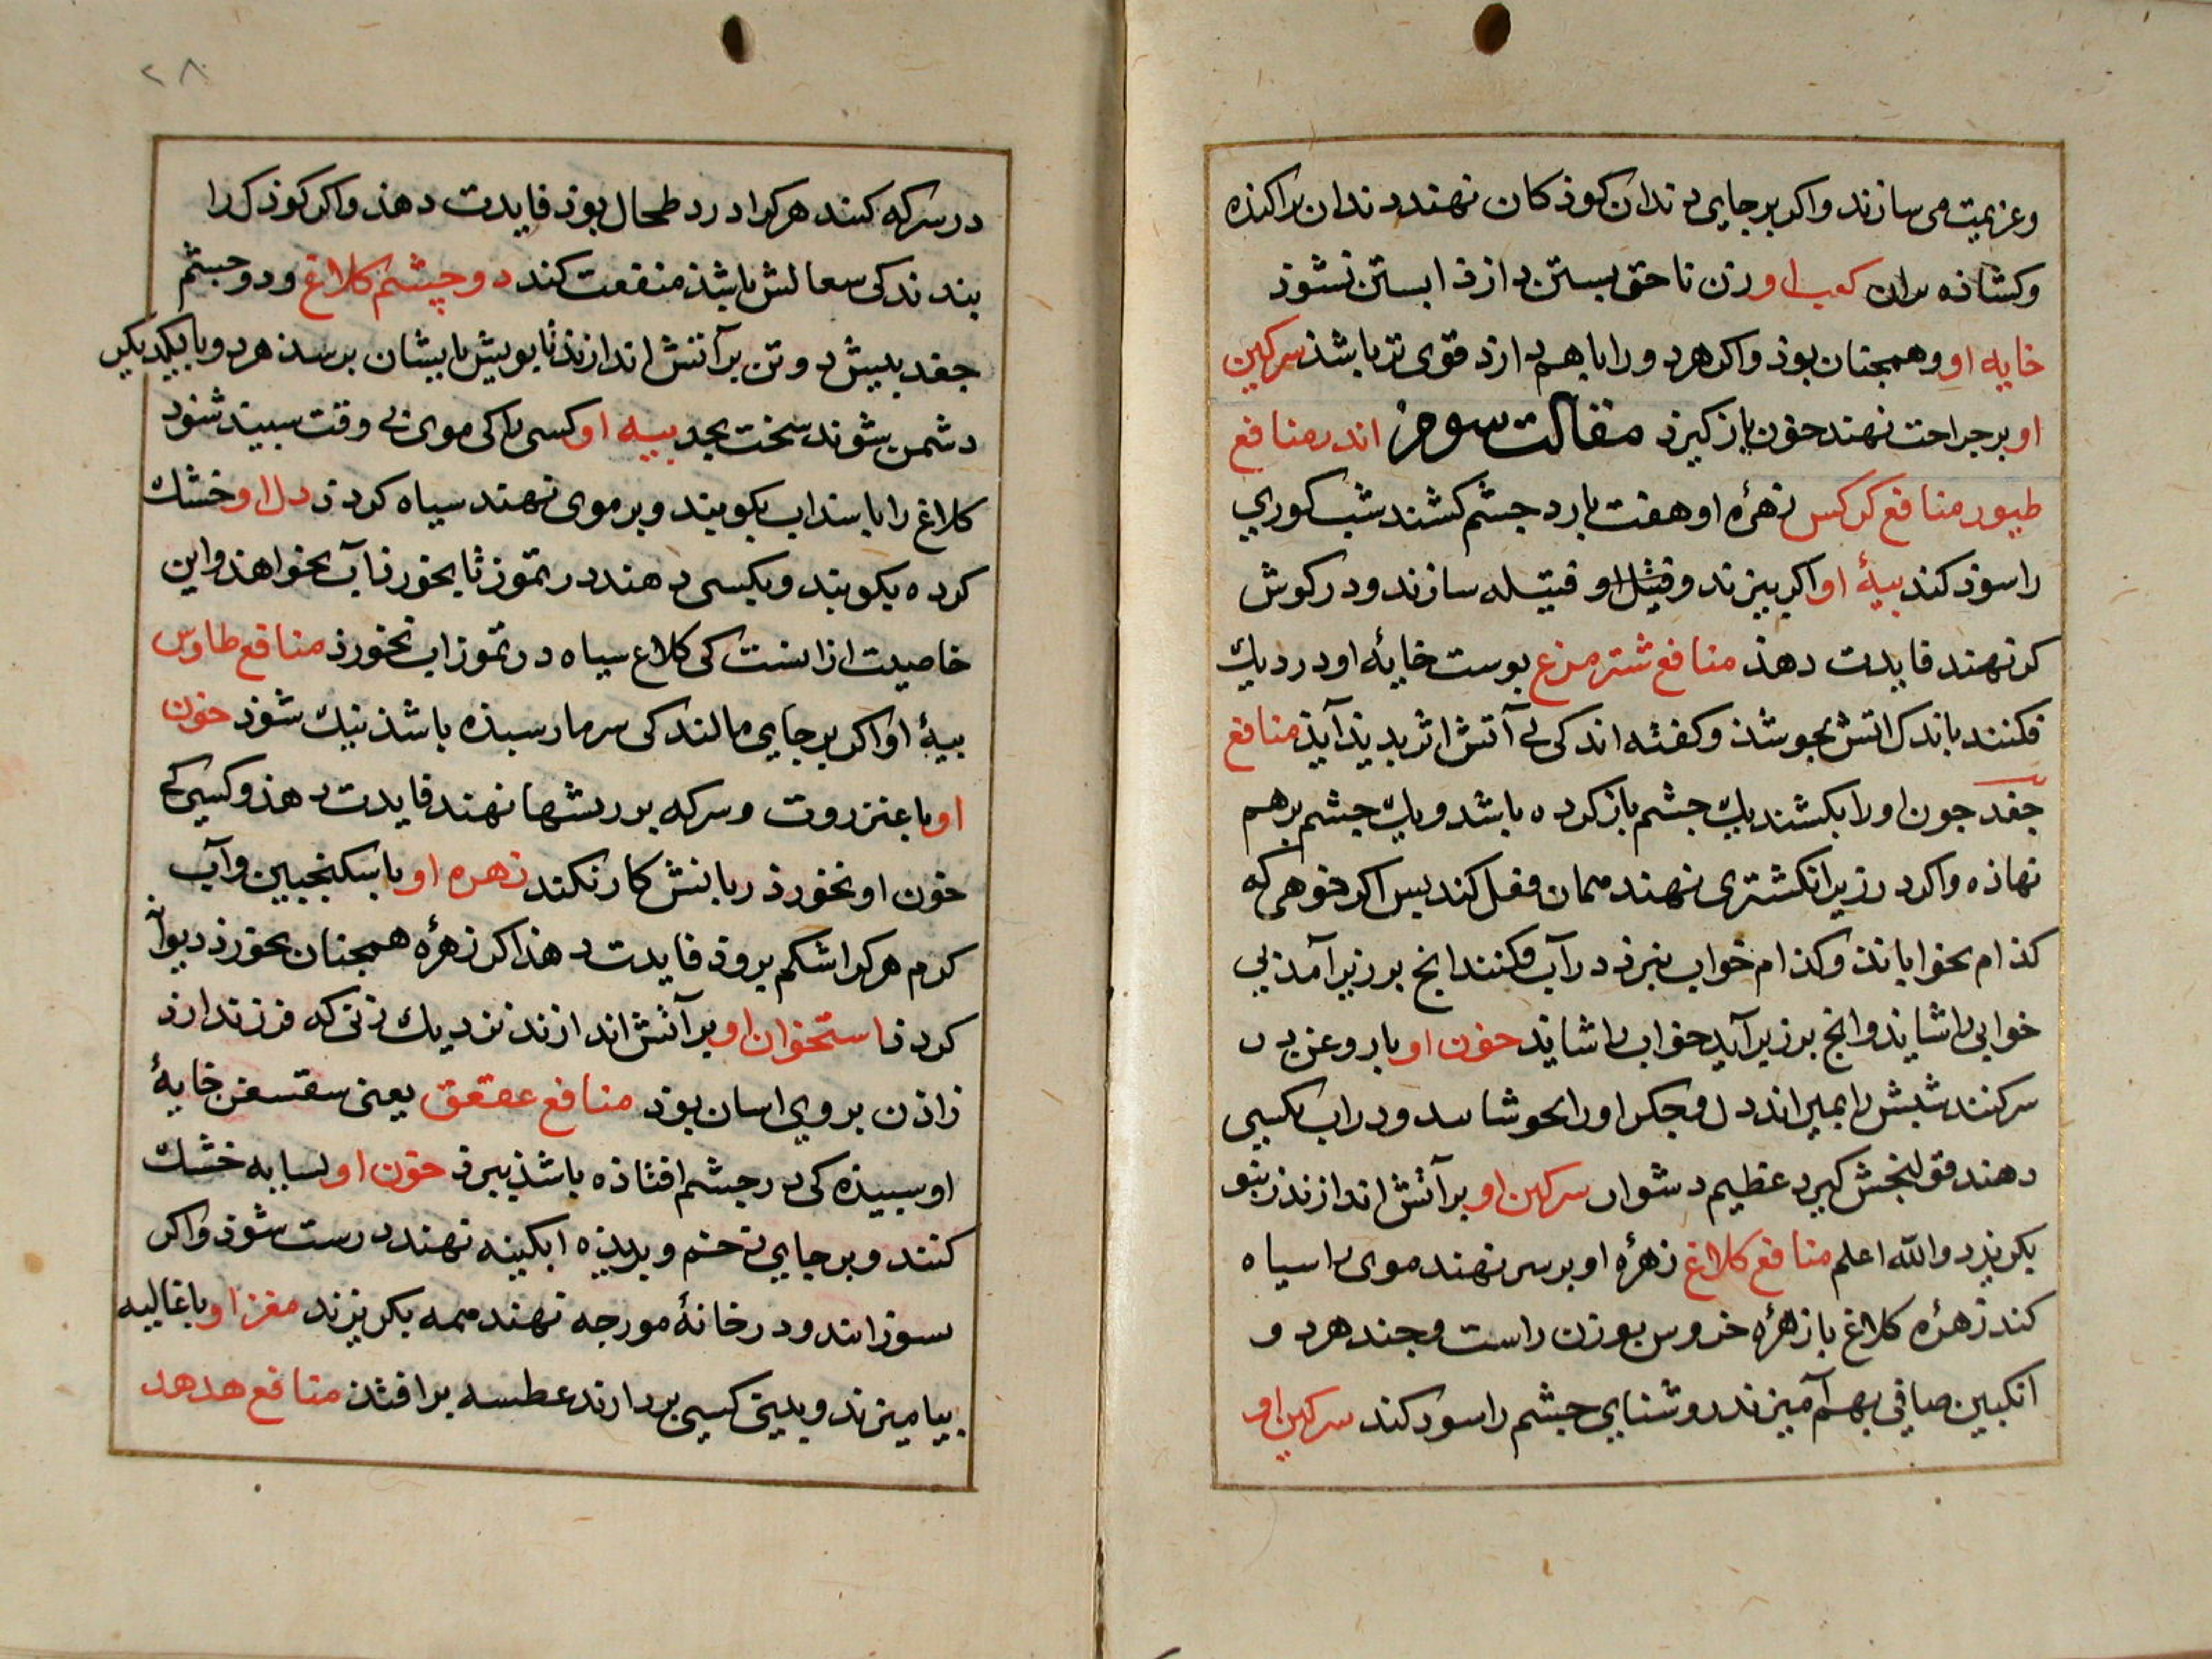 وعزیمت می سازند واکر بر جایی دندان کوذکان نهند دندان براکنذه
وکشاذه کعب او زن تا حق بستن دارذ ابستن نشوذ
خایه او وهمجنان بوذ واکر هردو را باهم دارذ قوی تر باشذ سرکین
او بر جراحت نهند خون باز کیرذ مقالت سوم اندر منافع
طیور منافع کرکس زهرهٔ او هفت بار در جشم کشند شب کوري
را سوذ کند بیهٔ او اکر ببزند وفتیله سازند ودر کوش
کر نهند فایدت دهذ منافع شتر مرغ بوست خایهٔ او در دیك
فکنند باندك اتش بجوشذ وکفته اند کی بی آتش اثر بدیذ آیذ منافع
جغد جون او را بکشند یك جشم باز کرده باشد ویك جشم برهم
نهاذه واکر در زیر انکشتری نهند همان فعل کند بس اکر خوهی که
کذام بخواباند وکذام خواب ببرذ در آب فکنند انج بر زیر آمذ بی
خوابی را شاید وانج بر زیر آید خواب را شاید خون او با روغن در
سر کنند شبش را بمیراند دل وجکر او را بخوشانند ودر اب بکسی
دهند قولنجش کیرد عظیم دشوار سرکین او بر آتش اندازند زنبور
بکریزد والله اعلم منافع کلاغ زهرهٔ او بر سر نهند موی را سیاه
کند زهرهٔ کلاغ با زهرهٔ خروس بوزن راست وجند هردو
انکبین صافی بهم آمیزند روشنایی جشم را سود کند سرکین او
۲۸
در سرکه کنند هر کرا درد طحال بوذ فایدت دهذ واکر کوذك را
بندند کی سعالش باشذ منفعت کند دو چشم کلاغ ودو جشم
جغد بیش دو تن بر آتش اندازند تا بویش بایشان برسذ هردو با یکدیکر
دشمن شوند سخت بجد بیه او کسی را کی موی بی وقت سبید شود
کلاغ را با سنداب بکوبند وبر موی نهند سیاه کردذ دل او خشك
کرده بکوبند وبکسی دهند در تموز تا بخورذ آب نخواهذ واین
خاصیت از انست کی کلاغ سیاه در تموز اب نخورذ منافع طاوس
بیهٔ او اکر بر جایی مالند کی سرما رسیذه باشذ نیك شوذ خون
او با عنزروت وسرکه بر ریشها نهند فایدت دهذ وکسی کی
خون او بخورذ زبانش کار نکند زهره او با سکنجبین وآب
کرم هر کرا شکم بروذ فایدت دهذ اکر زهرهٔ همجنان بخورذ دیوانه
کردذ استخوان او بر آتش اندازند نزدیك زنی که فرزند ارذ
زاذن بر وي اسان بوذ منافع عقعق یعنی سقسقن خایهٔ
او سبیذه کی در جشم افتاذه باشذ ببرذ خون او بسایه خشك
کنند وبر جایی زخم وبریذه ابکینه نهند درست شوذ واکر
بسوزانند ودر خانهٔ مورجه نهند همه بکریزند مغز او با غالیه
بیامیزند وببینی کسی بردارند عطسه برافتذ منافع هدهد